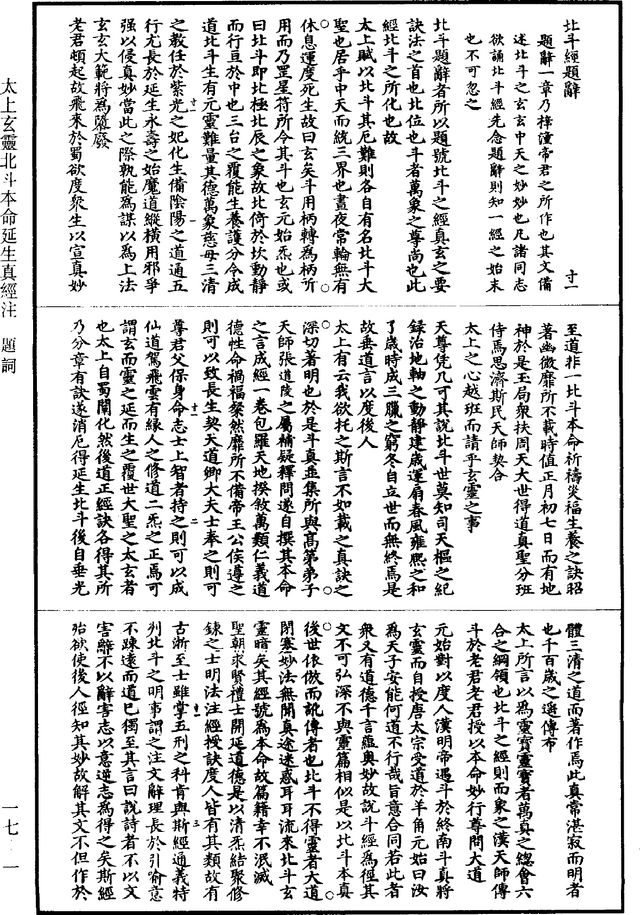 北斗經題辭
題辭一章乃梓潼帝君之所作也其文備
述北斗之玄玄中天之妙妙也凡諸同志
欲誦北斗經先念題辭則知一經之始末
也不可忽之
寸一
北斗題辭者所以題號北斗之經真玄之要
訣法之首也比位也斗者萬象之尊尚也此
經北斗之所化也故
太上賦以北斗其厄難則各自有名北斗大
聖也居乎中天而統三界也晝夜常輪無有
休息運度死生故曰玄矣斗用柄轉為柄所
用而乃罡星符所令其斗也玄元始炁也或
曰北斗即北極北辰之象故比倚於坎動靜
而行亘於中也三台之覆能生養護分令成
道北斗生有元靈難量其德萬象慈母三清
之教任於紫光之妃化生備陰陽之道通五
行尤長於延生永壽之始魔道縱橫用邪爭
强以侵真妙當此之際孰能為謀以為上法
玄玄大範將為隳廢
老君頓起故飛來於蜀欲度衆生以宣真妙
至道非一比斗本命祈禱災福生養之訣昭
著幽微靡所不載時值正月初七日而有地
神於是玉局衆扶周天大世得道真聖分班
侍焉思濟斯民天師契合
太上之心越班而請乎玄靈之事
天尊凭几可其說北斗世莫知司天樞之紀
録治地軸之動靜建歲運扇春風雍熙之和
了歲時成三臘之窮冬自立世而無終焉是
故垂道言以度後人
太上有云我欲托之斯言不如載之真訣之
深切著明也於是斗真並集所與高第弟子
天師張道陵之屬補疑釋問遂自撰其本命
之言成經一卷包羅天地揆敘萬類仁義道
德性命禍福粲然靡所不備帝王公侯遵之
則可以致長生契天道卿大夫士奉之則可
尊君父保身命志士上智者持之則可以成
仙道駕飛雲有緣人之修道二炁之正焉可
謂玄而靈之延而生之覆世大聖之太玄者
也太上自蜀闡化然後道正經訣各得其所
乃分章有訣遂消厄得延生北斗後自垂光
體三清之道而著作焉此真常湛寂而明者
也千百歲之遥傳布
太上所言以為靈寶靈寶者萬真之緫會六
合之綱領也比斗之經則而象之漢天師傳
斗於老君老君授以本命妙行尊問大道
元始對以度人漢明帝遇斗於終南斗真將
玄靈而自授唐太宗受道於羊角元始曰汝
為天子安能何道不行哉旨意合同若此者
衆又有道德千言蘊奥妙故說斗經為徑其
文不可弘深不與靈篇相似是以比斗本真
後世依倣而訛傳者也比斗不得靈者大道
閉塞妙法無聞真途迷惑耳耳流來北斗玄
靈暗矣其經號為本命故篇籍幸不泯滅
聖朝求賢禮士開延道德是以清炁結聚修
鍊之士明法注經授訣度人皆有其類故有
古浙至士雖掌五刑之科肯與斯經通義特
判北斗之明事謂之注文辭理長於引喻意
不踈遠而道已獨至其言曰說詩者不以文
害辭不以辭害志以意逆志為得之矣斯經
殆欲使後人徑知其妙故解其文不但作於
太上玄靈北斗本命延生真經注　題詞
一七·一